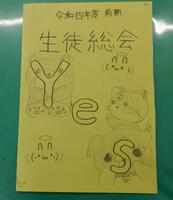 令和四年度 前期
生徒総会
Yes